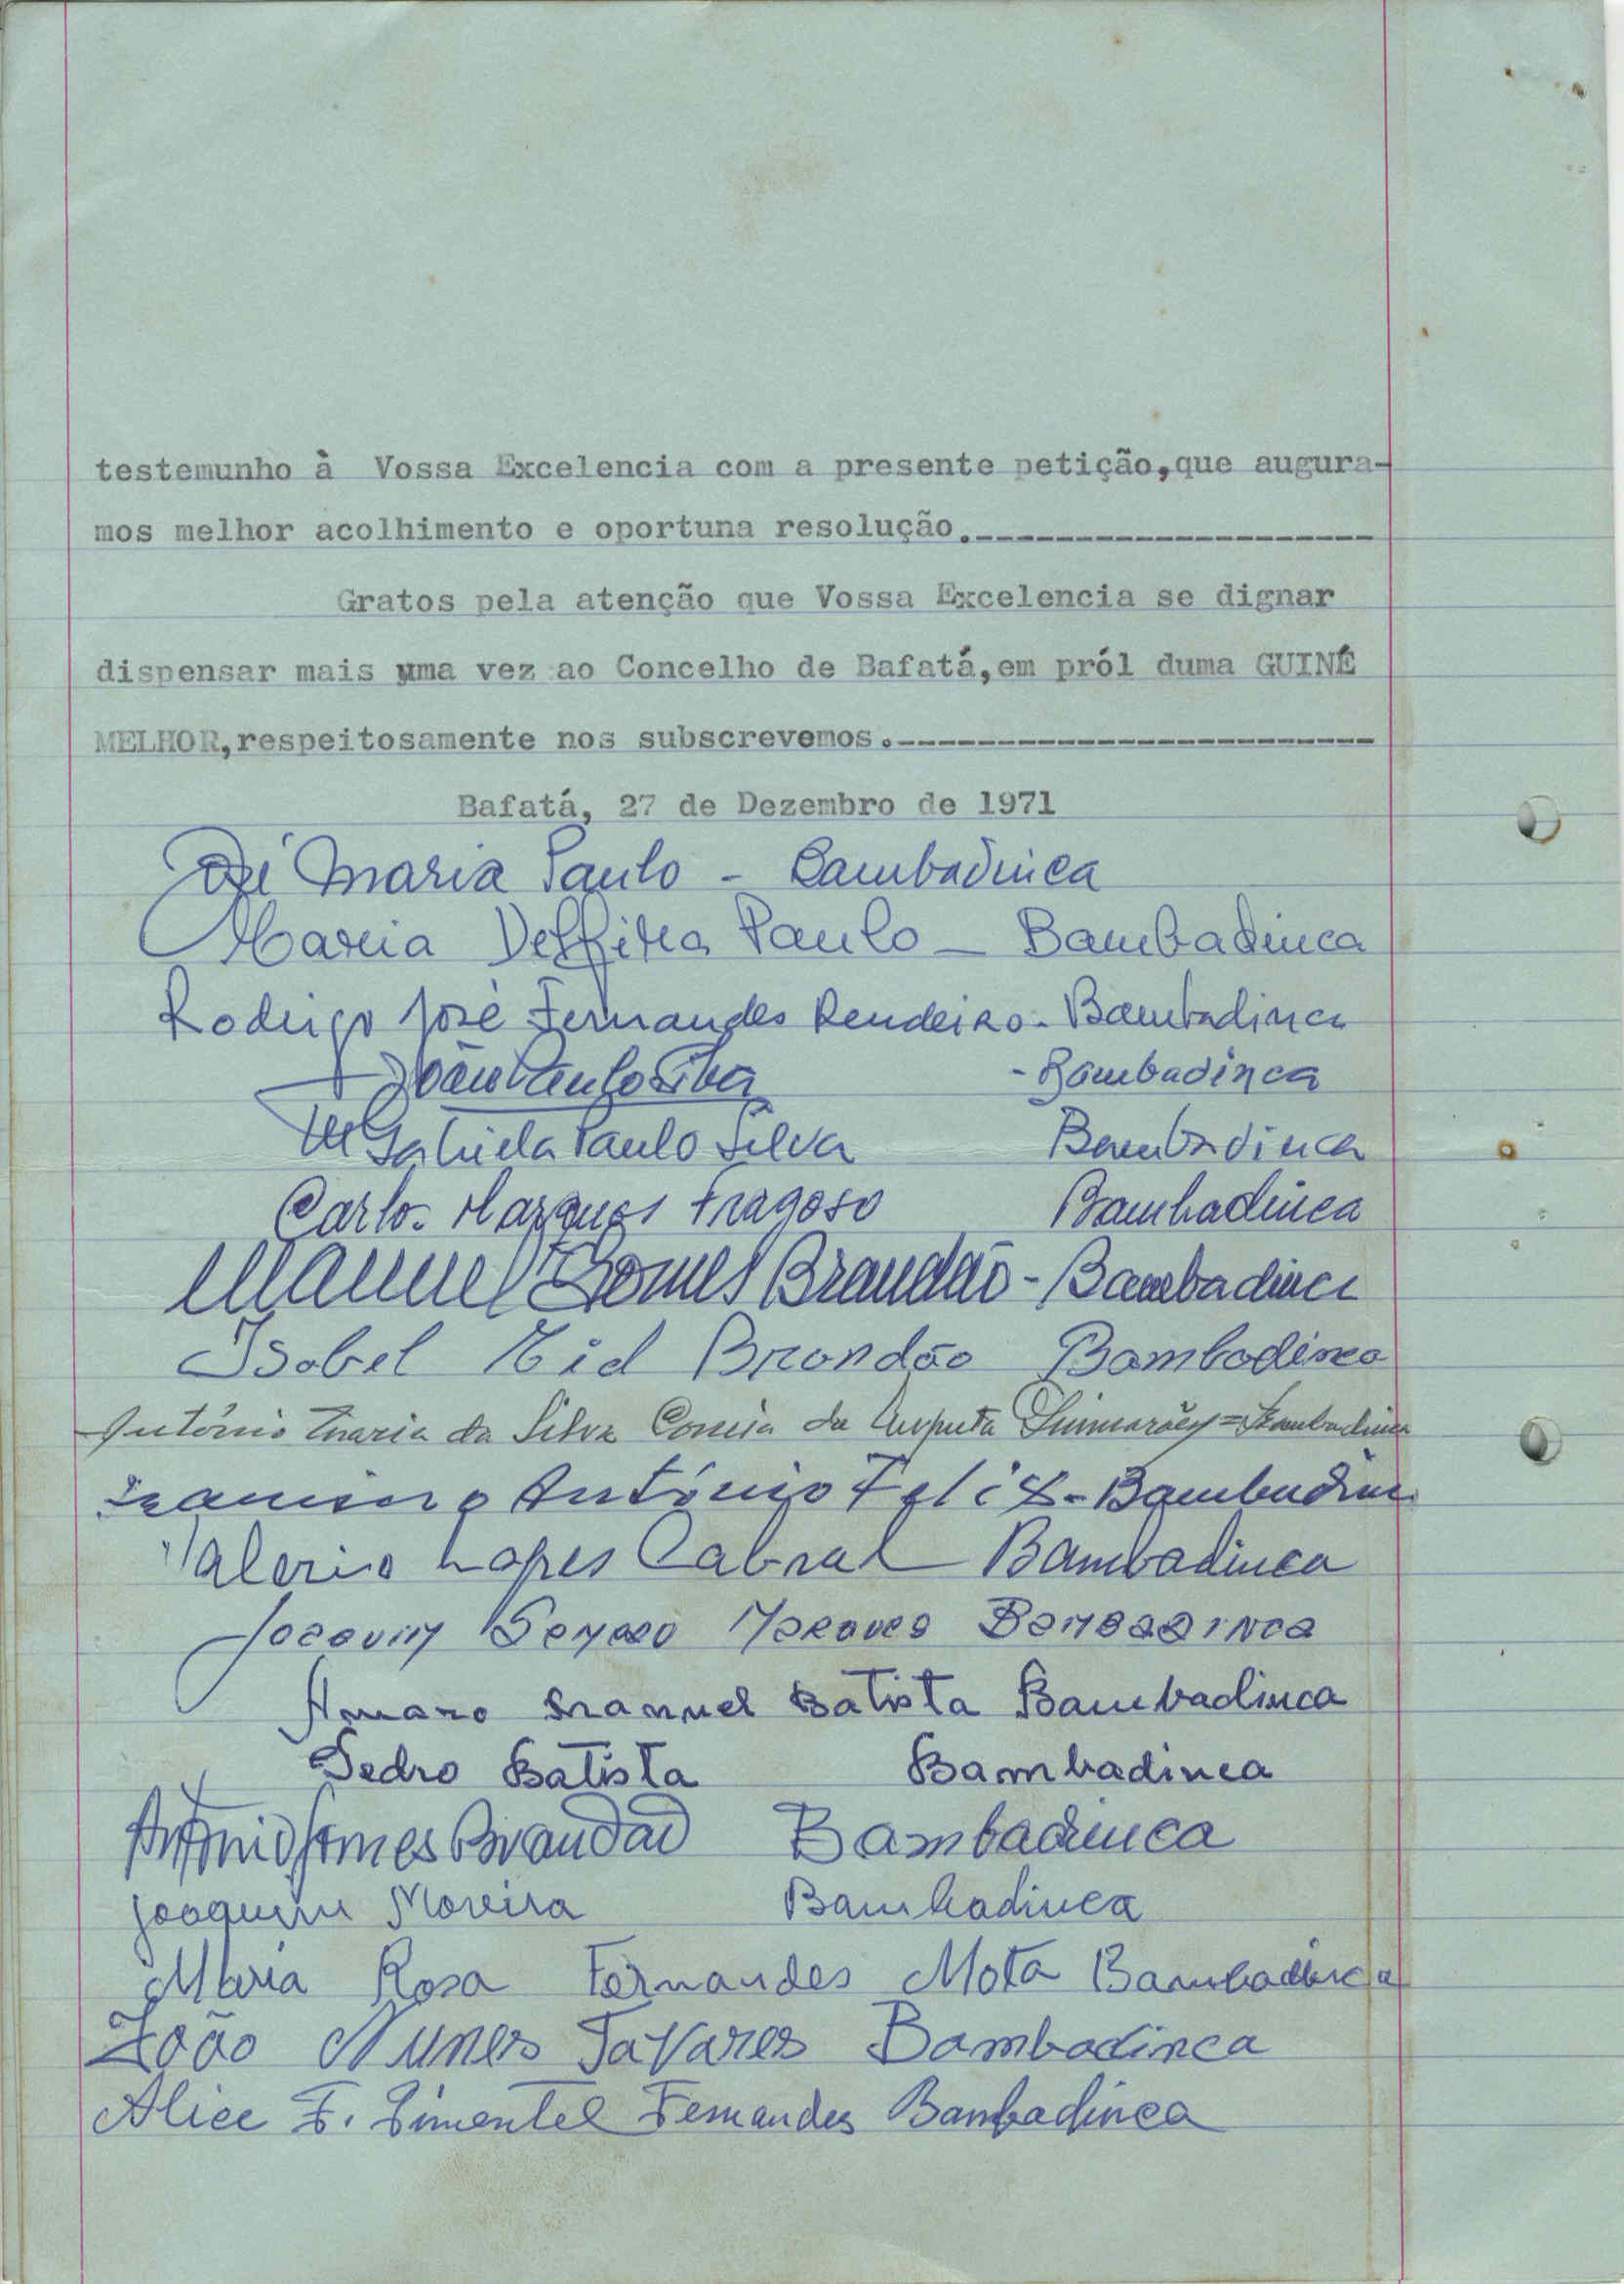 testemunho à Vossa Excelencia com a presente petição,que augura-
mos melhor acolhimento e oportuna resolução.--------------------
Gratos pela atenção que Vossa Excelencia se dignar
dispensar mais uma vez ao Concelho de Bafatá,em pról duma GUINÉ
MELHOR,respeitosamente nos subscrevemos.------------------------
Bafatá, 27 de Dezembro de 1971
José Maria Paulo - Bambadinca
Maria Delfina Paulo - Bambadinca
Rodrigo José Fernandes Rendeiro - Bambadinca
João Paulo Silva - Bambadinca
M Gabriela Paulo Silva Bambadinca
Carlos Marques Fragoso Bambadinca
Manuel Gomes Brandão - Bambadinca
Isabel Brandão Bambadinca
António Maria da Silva Correia da Guimarães = Bambadinca
António Felix - Bambadinca
Valerio Lopes Cabral Bambadinca
BAMBADINCA
Amaro Manuel Batista Bambadinca
Pedro Batista Bambadinca
António Gomes Brandão Bambadinca
Joaquim Moreira Bambadinca
Maria Rosa Fernandes Mota Bambadinca
João Nunes Tavares Bambadinca
Alice F. Pimentel Fernandes Bambadinca